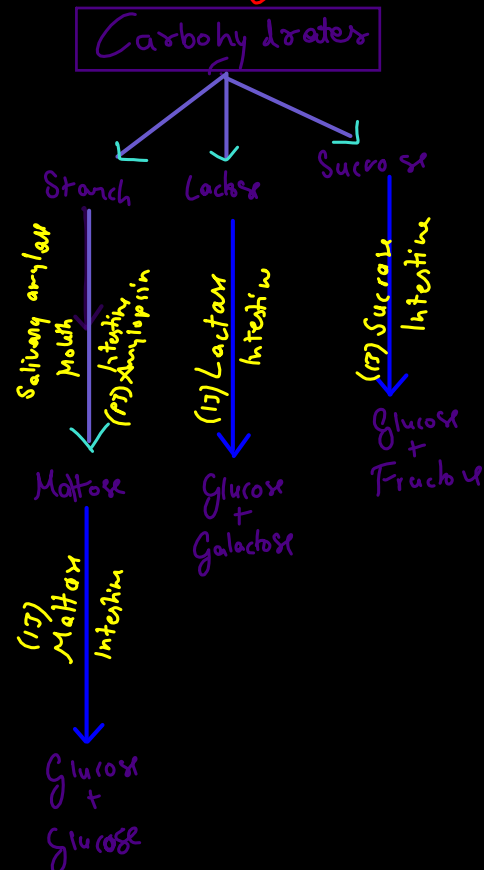 Carbohydrates
Starch
Lactose
Sucrose
Salivary amylase
Mouth
Intestine
(PJ) Amylopsin
(IJ) Lactase
Intestine
(IJ) Sucrase
Intestine
Maltose
Glucose
+
Galactose
Glucose
+
Fructose
(IJ)
Maltase
Intestine
Glucose
+
Glucose